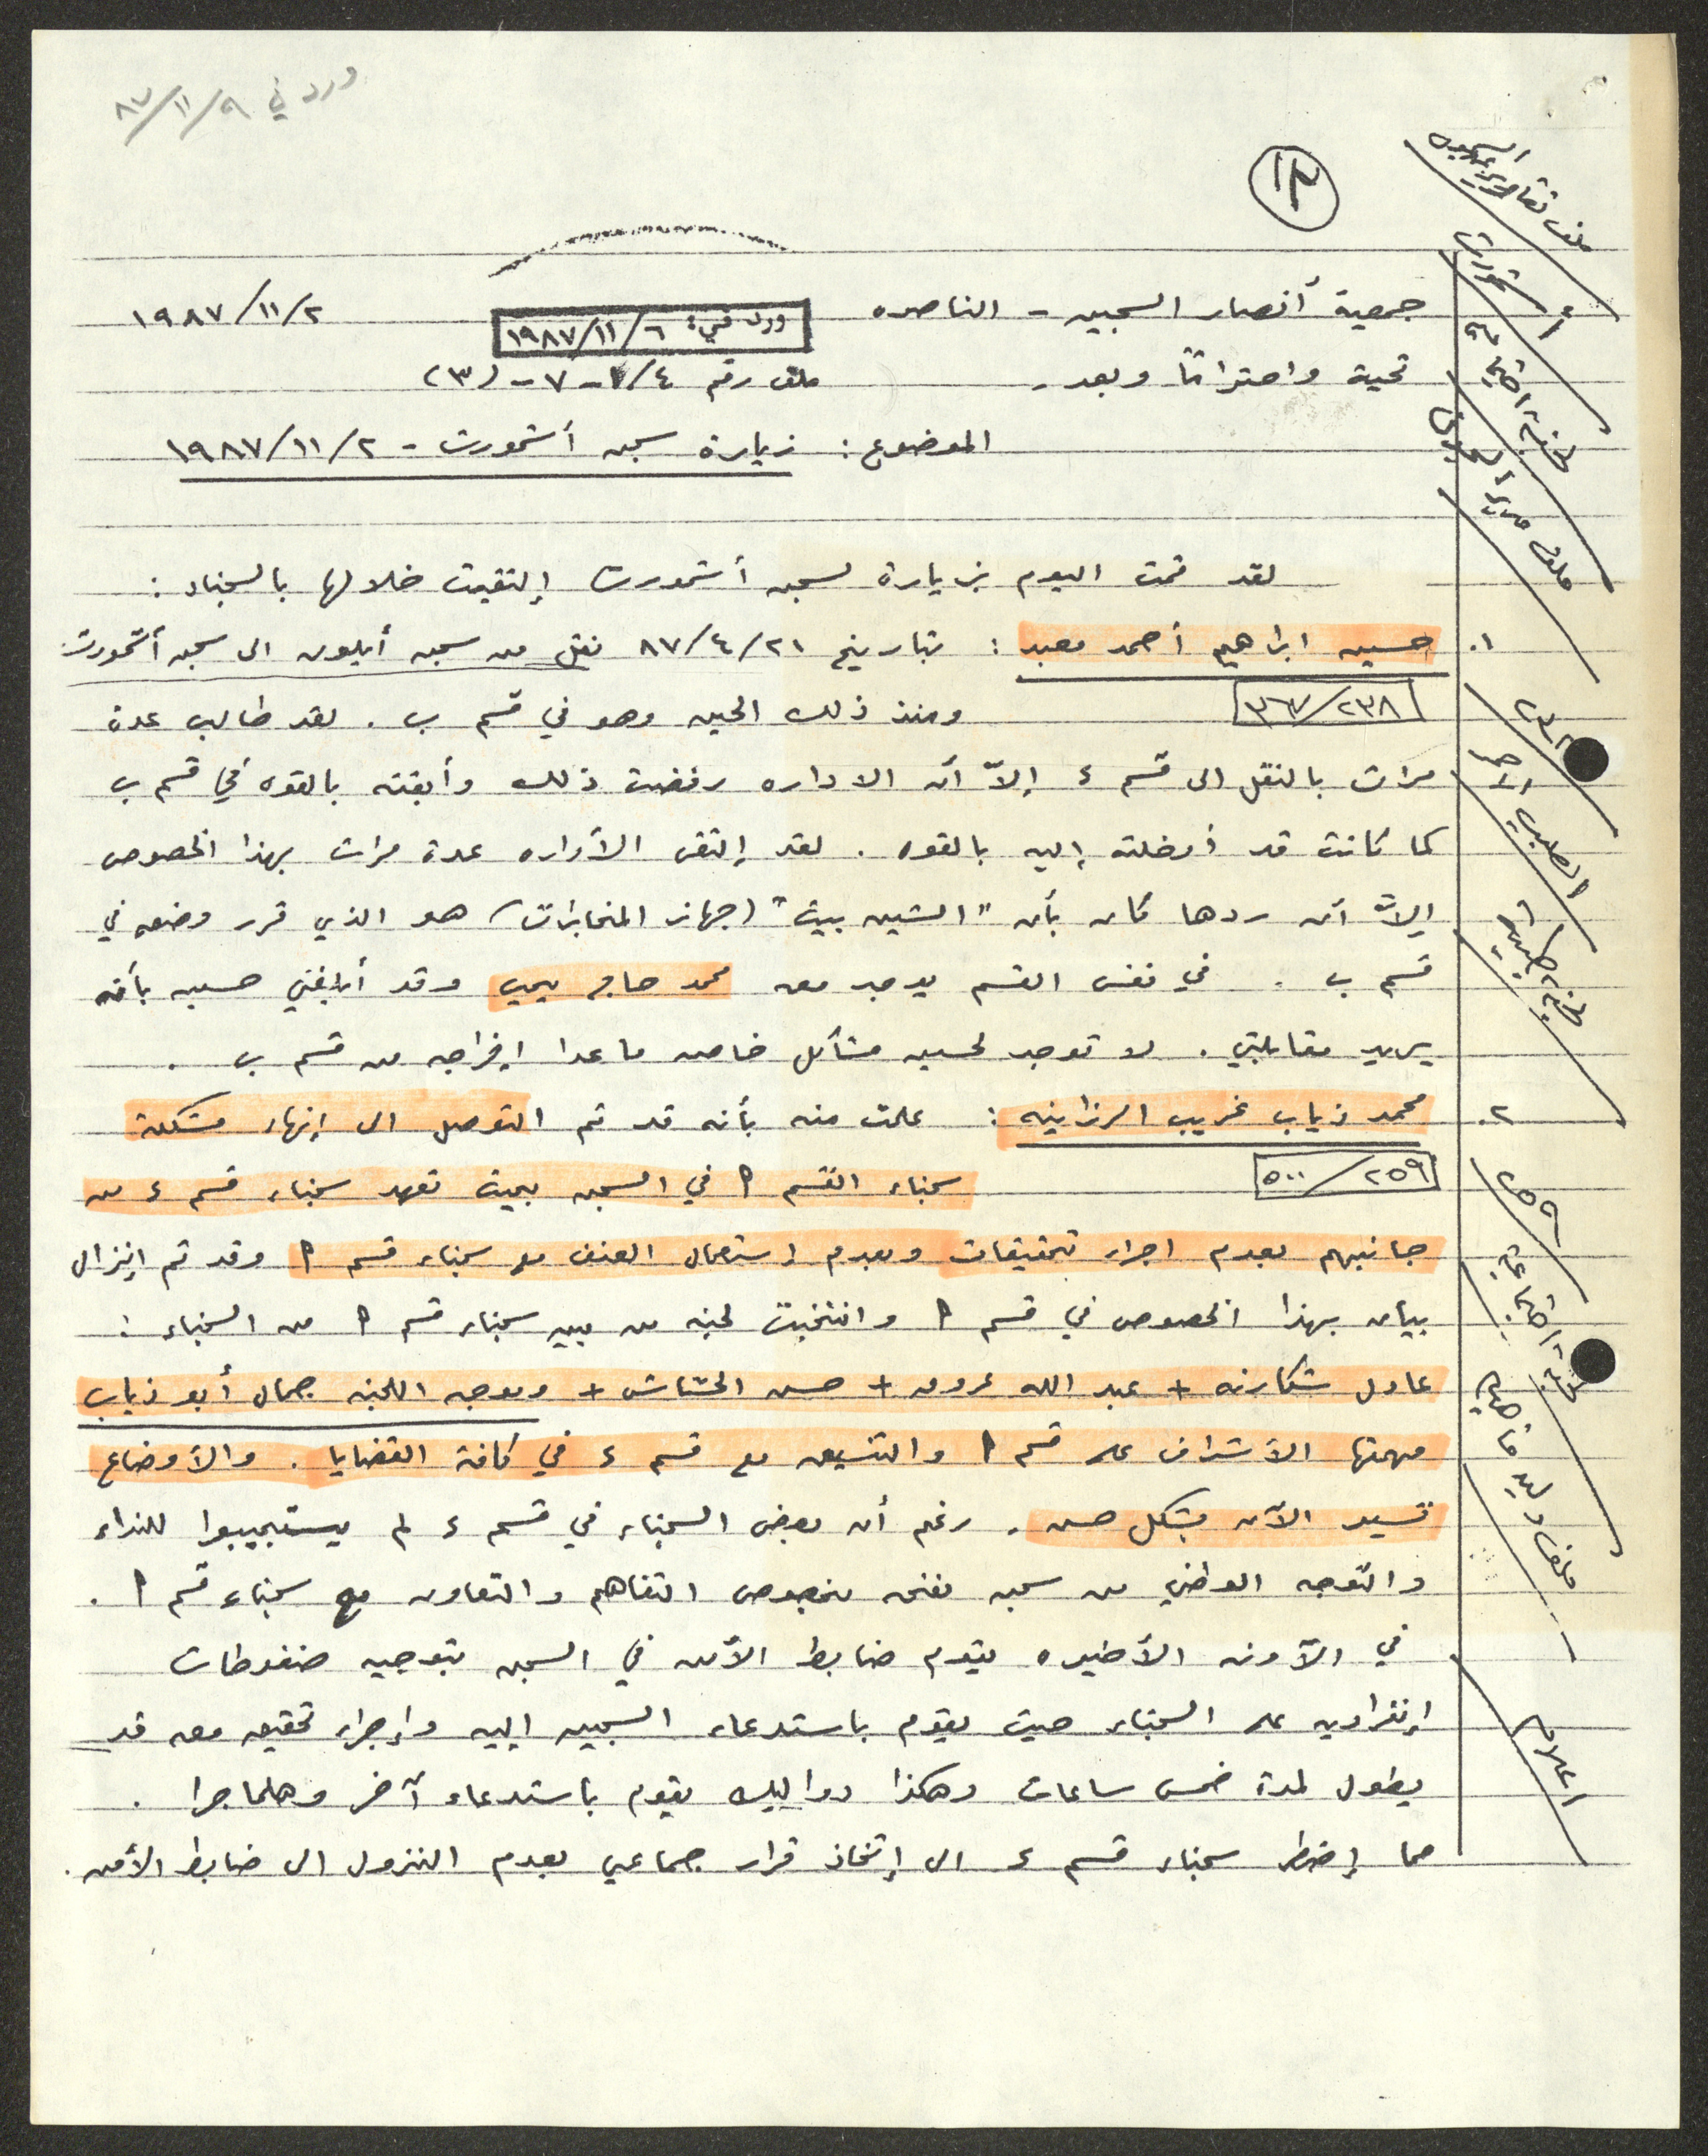 ورد في ٨٧/١١/٩
١٣
جمعية أنصار السجين - الناصره
١٩٨٧/١١/٢
ورد في: ١٩٨٧/١١/٦
تحية واحتراماً وبعد -
ملف رقم ٤/١-٧-(٣)
الموضوع: زيارة سجن أشمورت - ١٩٨٧/١١/٢
لقد قمت اليوم بزيارة لسجن أشمورت إلتقيت خلالها بالسجناء:
١. حسين ابراهيم أحمد معبد: بتاريخ ٨٧/٤/٢١ نقل من سجن أيلون الى سجن أشمورت
٣٦٧/٢٣٨
ومنذ ذلك الحين وهو في قسم ب. لقد طالب عدة
مرات بالنقل الى قسم ء إلاّ أن الاداره رفضت ذلك وأبقته بالقوه في قسم ب
كما كانت قد أدخلته إليه بالقوه. لقد إلتقى الأداره عدة مرات بهذا الخصوص
إلاّ أن ردها كان بأن "الشين بيت" (جهاز المخابرات) هو الذي قرر وضعه في
قسم ب. في نفس القسم يوجد معه محمد حاج يحيى وقد أبلغني حسين بأنه
يريد مقابلتي. لا توجد لحسين مشاكل خاصه ما عدا إخراجه من قسم ب.
٢. محمد ذياب غريب الرزاينه: علمت منه بأنه قد تم التوصل الى إنهاء مشكلة
٥٠٠/٢٥٩
سجناء القسم ط في السجن بحيث تعهد سجناء قسم ء من
جانبهم بعدم اجراء تحقيقات وبعدم إستعمال العنف مع سجناء قسم ط وقد تم إنزال
بيان بهذا الخصوص في قسم ط وانتخبت لجنه من بين سجناء قسم ط من السجناء:
عادل شكارنه + عبد الله عروق + حسن الخشاش + وموجه اللجنه جمال أبو ذياب
مهمتها الأشراف على قسم ط والتنسيق مع قسم ء في كافة القضايا. والأوضاع
تسير الآن بشكل حسن. رغم أن بعض السجناء في قسم ء لم يستجيبوا للنداء
والتوجه الوطني من سجن نفحه بخصوص التفاهم والتعاون مع سجناء قسم ط.
في الآونه الأخيره يقوم ضابط الأمن في السجن بتوجيه ضغوطات
إنفراديه على السجناء حيث يقوم باستدعاء السجين اليه وإجراء تحقيق معه قد
يطول لمدة خمس ساعات وهكذا دواليك يقوم باستدعاء آخر وهلماجرا.
مما إضطر سجناء قسم ء الى إتخاذ قرار جماعي بعدم النزول الى ضابط الأمن.
أشمورت
٢٣٨
٢٥٩
اعلام